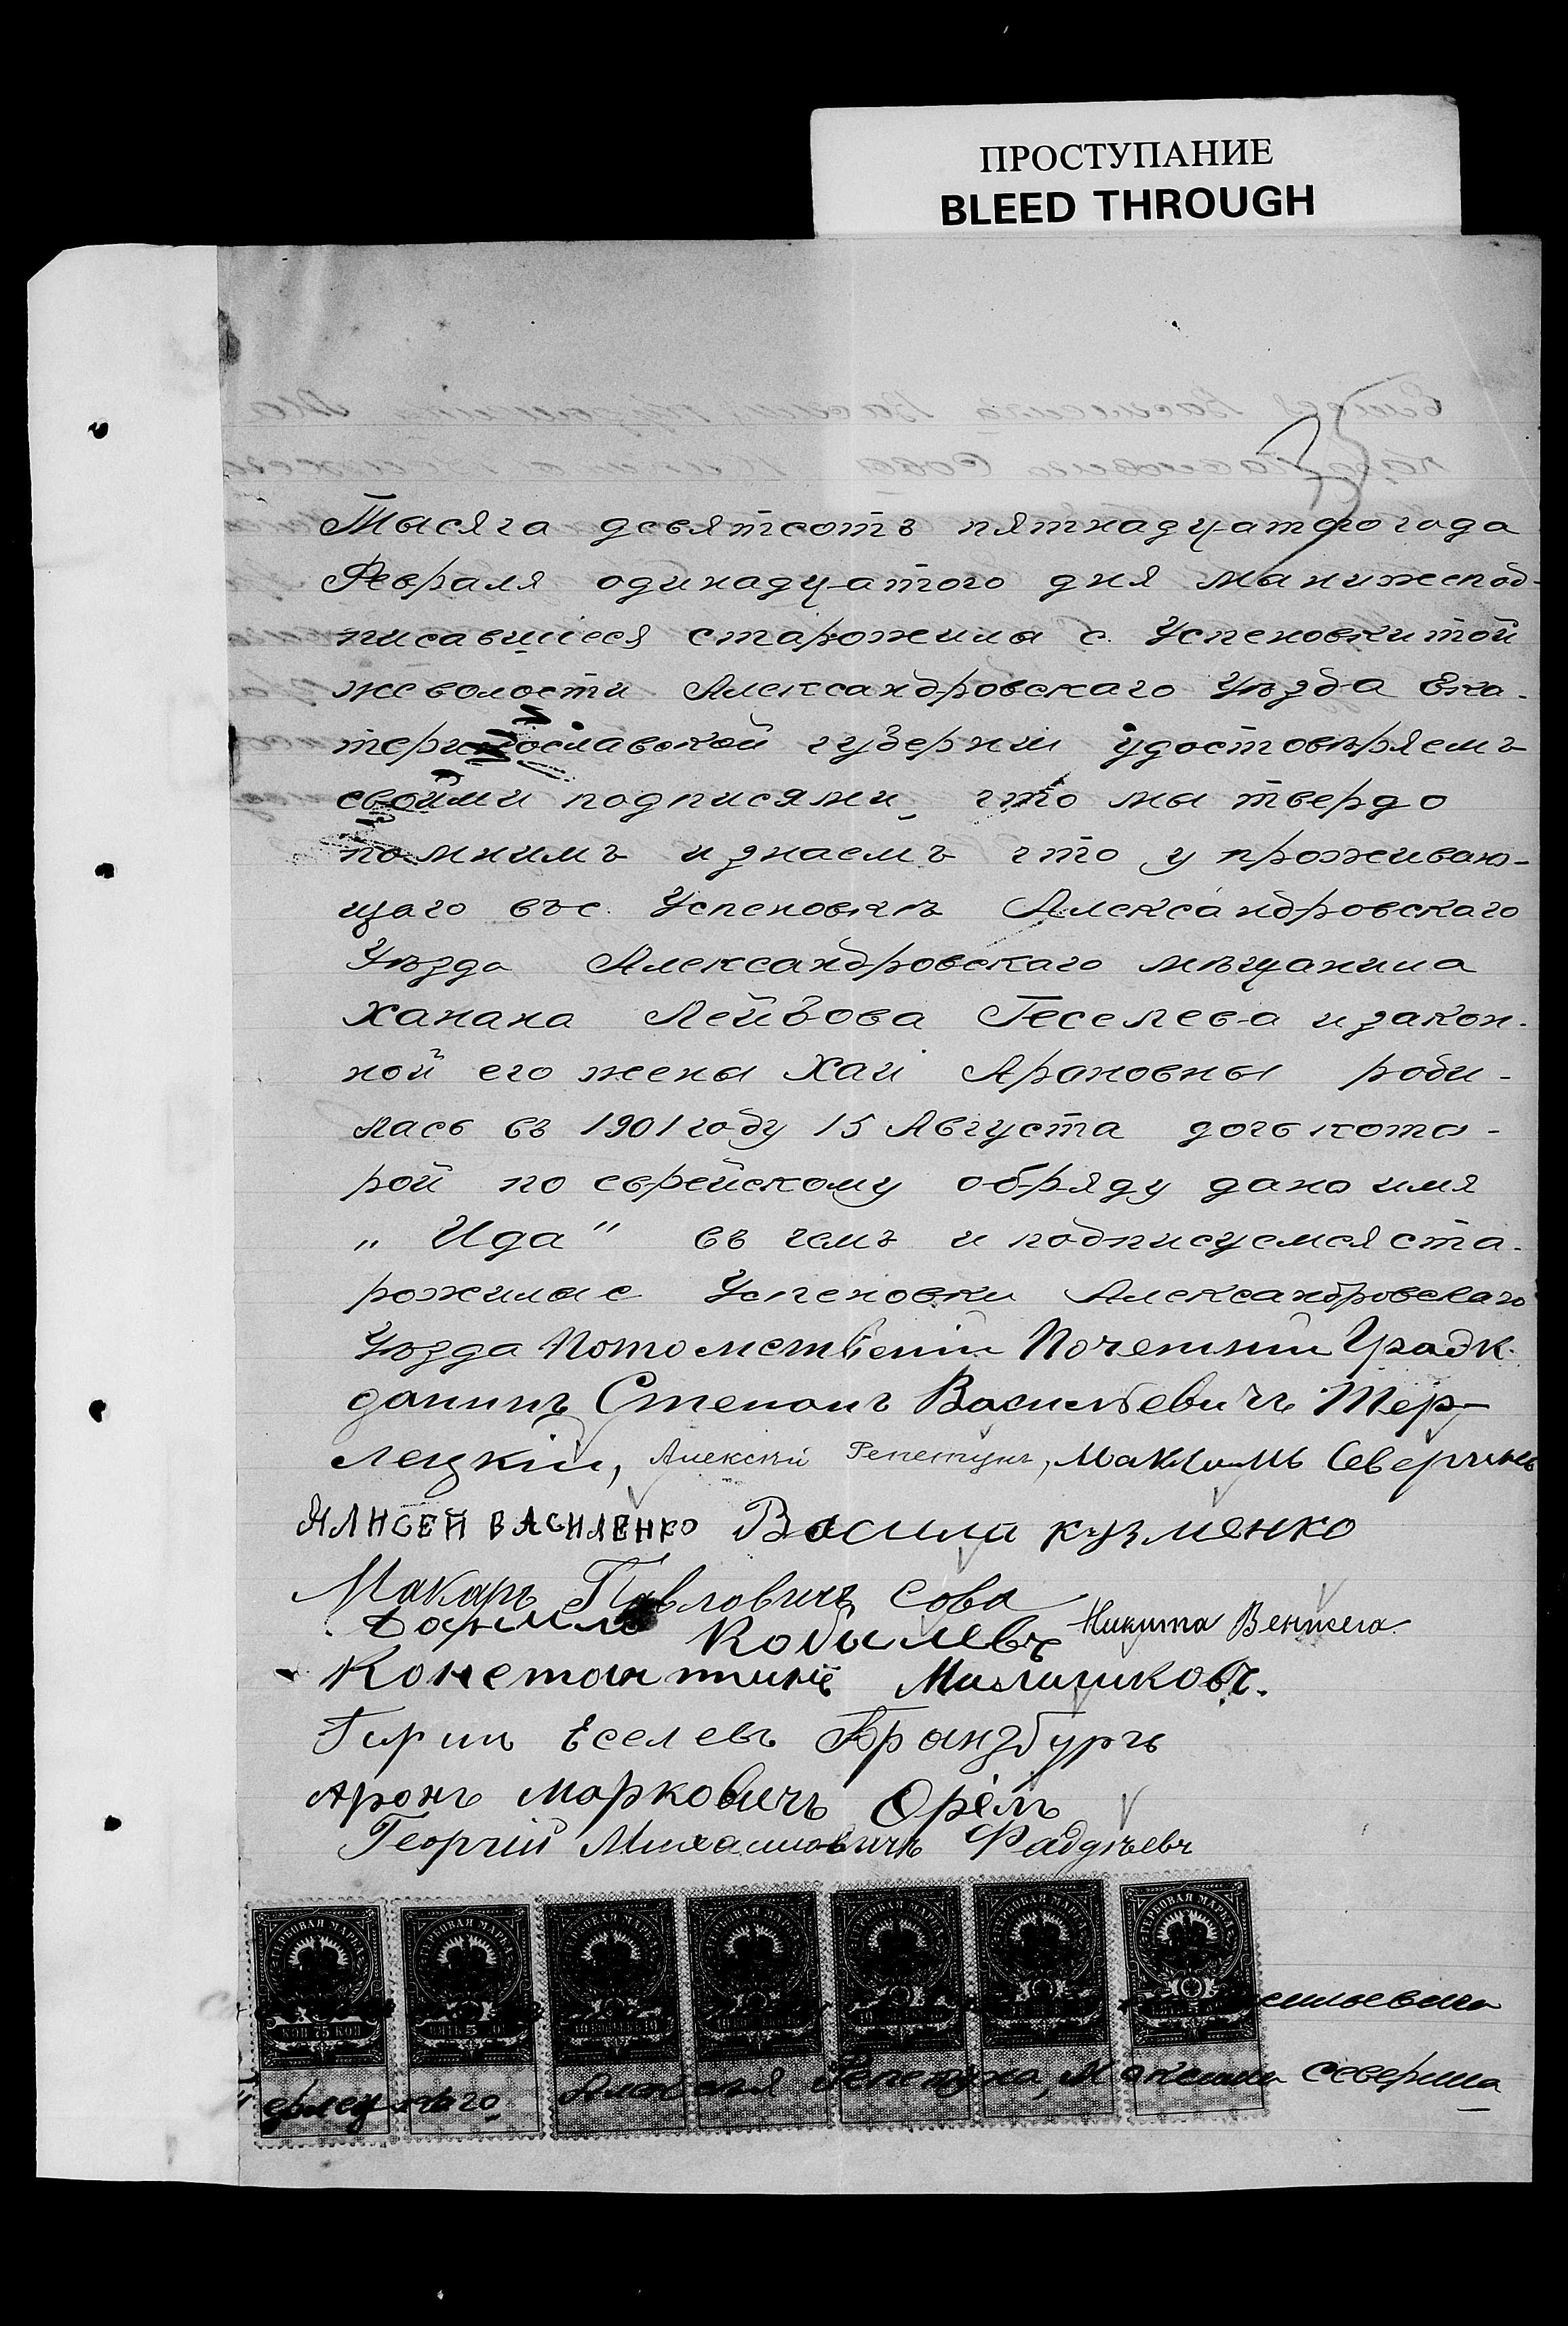 ПРОСТУПАНИЕ
BLEED THROUGH
Тысяча девятсотъ пятнадцатого года
Февраля одинадцатого дня мы нижепод-
писавшиеся старожилы с. Успеновки той
же волости Александровскаго Уѣзда Ека-
теринославской губернии удостовѣряемъ
своими подписями, что мы твердо
помнимъ и знаемъ что у проживаю-
щаго въ с. Успеновкѣ Александровскаго
Уѣзда Александровскаго мѣщанина
Ханана Лейбова Геселева и закон-
ной его жены Хаи Ароновны роди-
лась въ 1901 году 15 Августа дочь кото-
рой по еврейскому обряду дано имя
„Ида" въ чемъ и подписуемся ста-
рожилы с Успеновки Александровскаго
Уѣзда Потомственій Почетний Гражд-
данинъ Степанъ Васильевичъ Тер-
лецкій, Алексѣй Репетунъ, Максимъ Северинъ
Алисей Василенко Василий Кузменко
Макаръ Павловичъ Сова
Данило Кобилевъ Никита
Констонтинъ
Еселевъ
Аронъ Марковичъ Орелъ
Георгій Михайловичъ Фаддѣевъ
ГЕРБОВАЯ МАРКА ГЕРБОВАЯ МАРКА ГЕРБОВАЯ МАРКА ГЕРБОВАЯ МАРКА ГЕРБОВАЯ МАРКА ГЕРБОВАЯ МАРКА ГЕРБОВАЯ МАРКА
КОП 75 КОП
Алексѣя Репетуна, Максима Северина